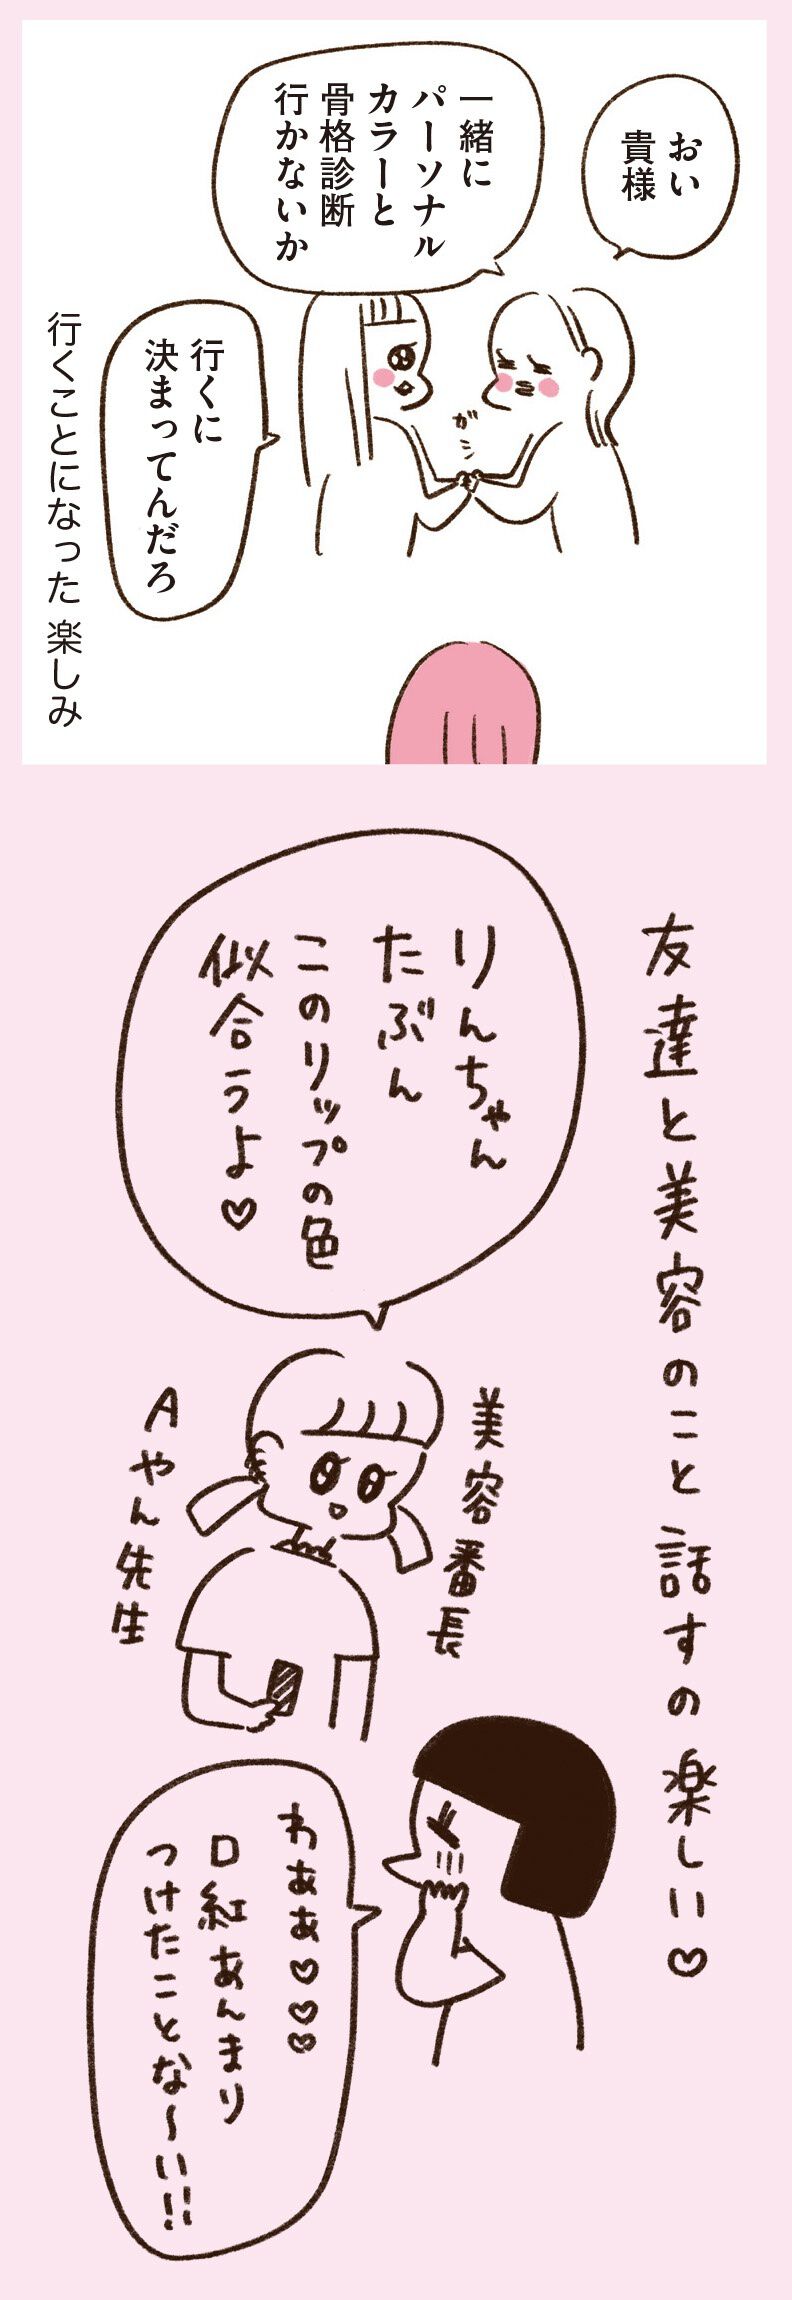 おい
貴様
一緒に
パーソナル
カラーと
骨格診断
行かないか
がシ
行くに
決まってんだろ
行くことになった 楽しみ
友達と美容のこと 話すの 楽しい♡
りんちゃん
たぶん
このリップの色
似合うよ♡
美容番長
Aやん先生
わぁぁ♡♡♡
口紅あんまり
つけたことな〜い!!